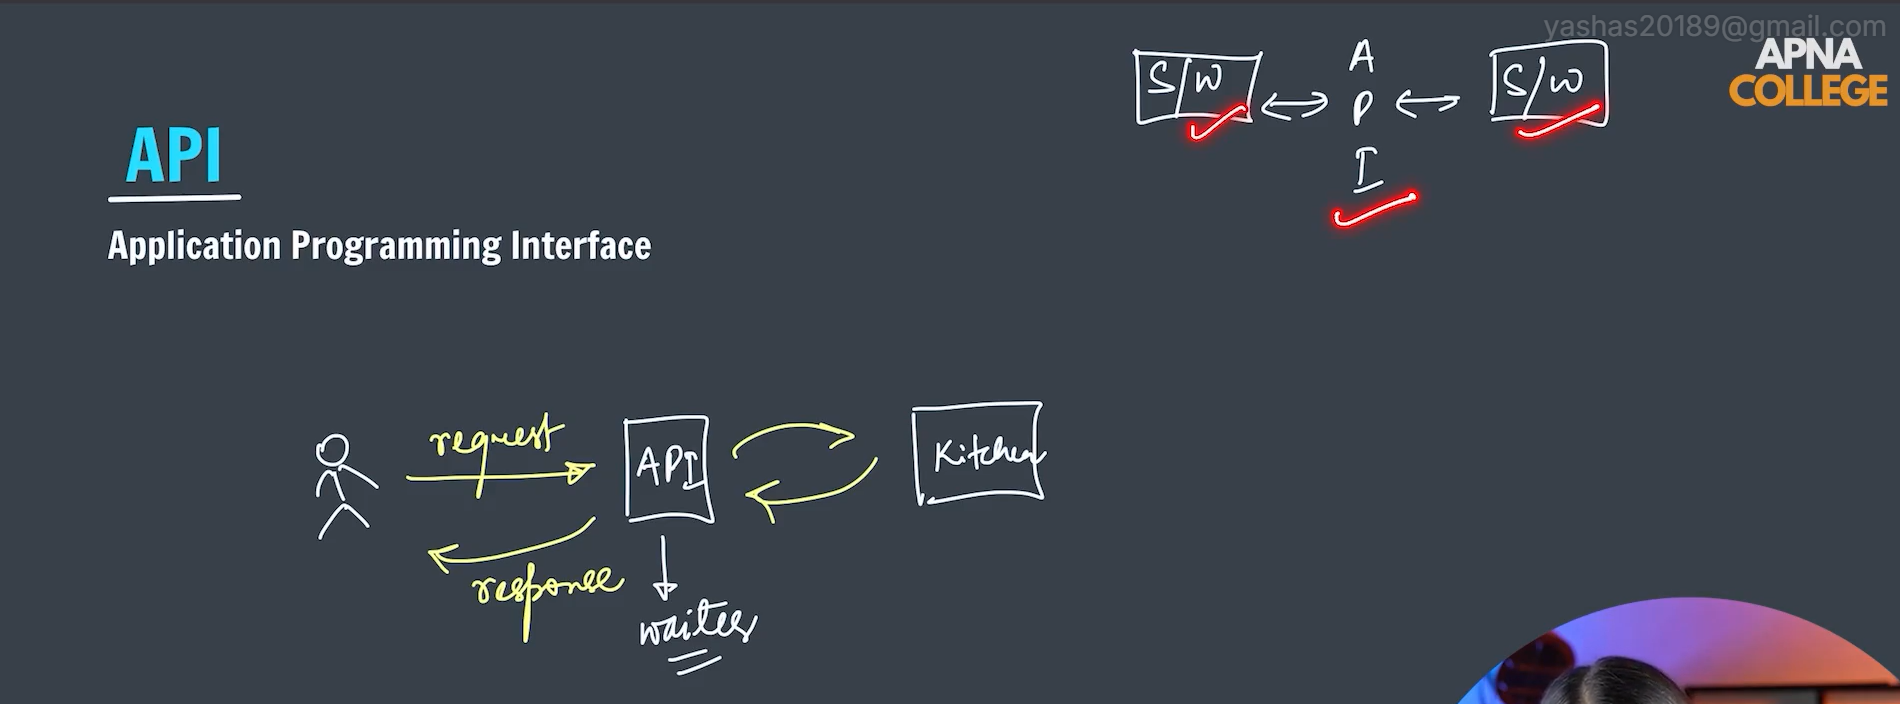 yashas20189@gmail.com
APNA
COLLEGE
S/W
A
P
I
S/W
API
Application Programming Interface
request
API
Kitchen
response
waiter